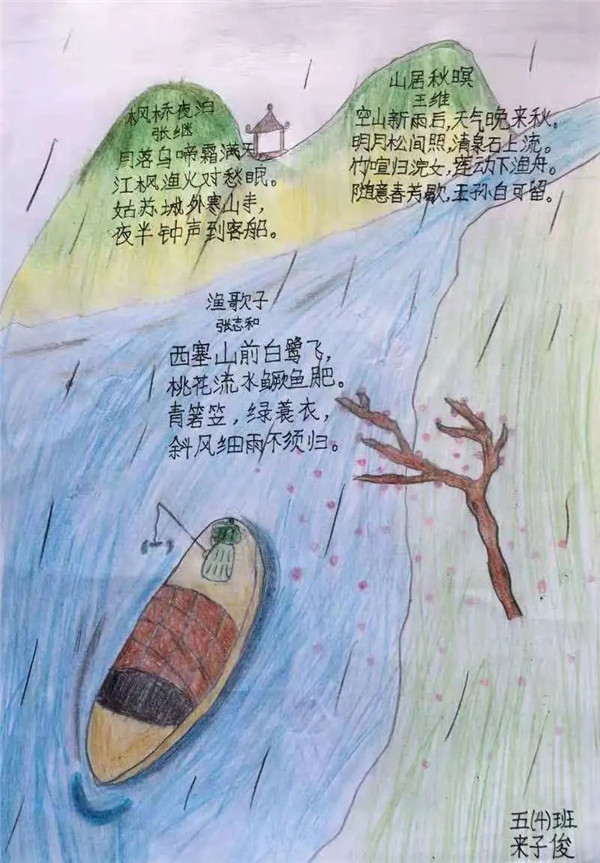 枫桥夜泊
张继
月落乌啼霜满天,
江枫渔火对愁眠。
姑苏城外寒山寺,
夜半钟声到客船。
山居秋暝
王维
空山新雨后,天气晚来秋。
明月松间照,清泉石上流。
竹喧归浣女,莲动下渔舟。
随意春芳歇,王孙自可留。
渔歌子
张志和
西塞山前白鹭飞,
桃花流水鳜鱼肥。
青箬笠,绿蓑衣,
斜风细雨不须归。
五(4)班
来子俊